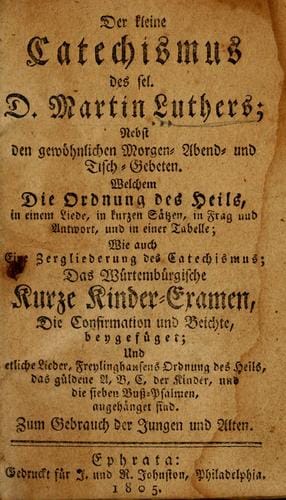 Der kleine
Catechismus
des sel.
D. Martin Luthers;
Nebst
den gewöhnlichen Morgen- Abend- und
Tisch-Gebeten.
Welchem
Die Ordnung des Heils,
in einem Liede, in kurzen Sätzen, in Frag und
Antwort, und in einer Tabelle;
Wie auch
Eine Zergliederung des Catechismus;
Das Würtembürgische
Kurze Kinder-Examen,
Die Confirmation und Beichte,
beygefüget;
Und
etliche Lieder, Freylinghausens Ordnung des Heils,
das güldene A, B, C, der Kinder, und
die sieben Buß-Psalmen,
angehänget sind.
Zum Gebrauch der Jungen und Alten.
Ephrata:
Gedruckt für J. und R. Johnston, Philadelphia.
1805.